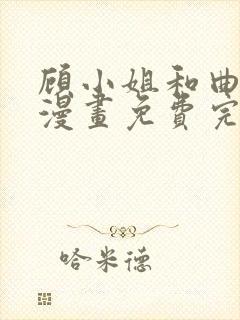 顾小姐和曲
漫畫免費完
哈米德